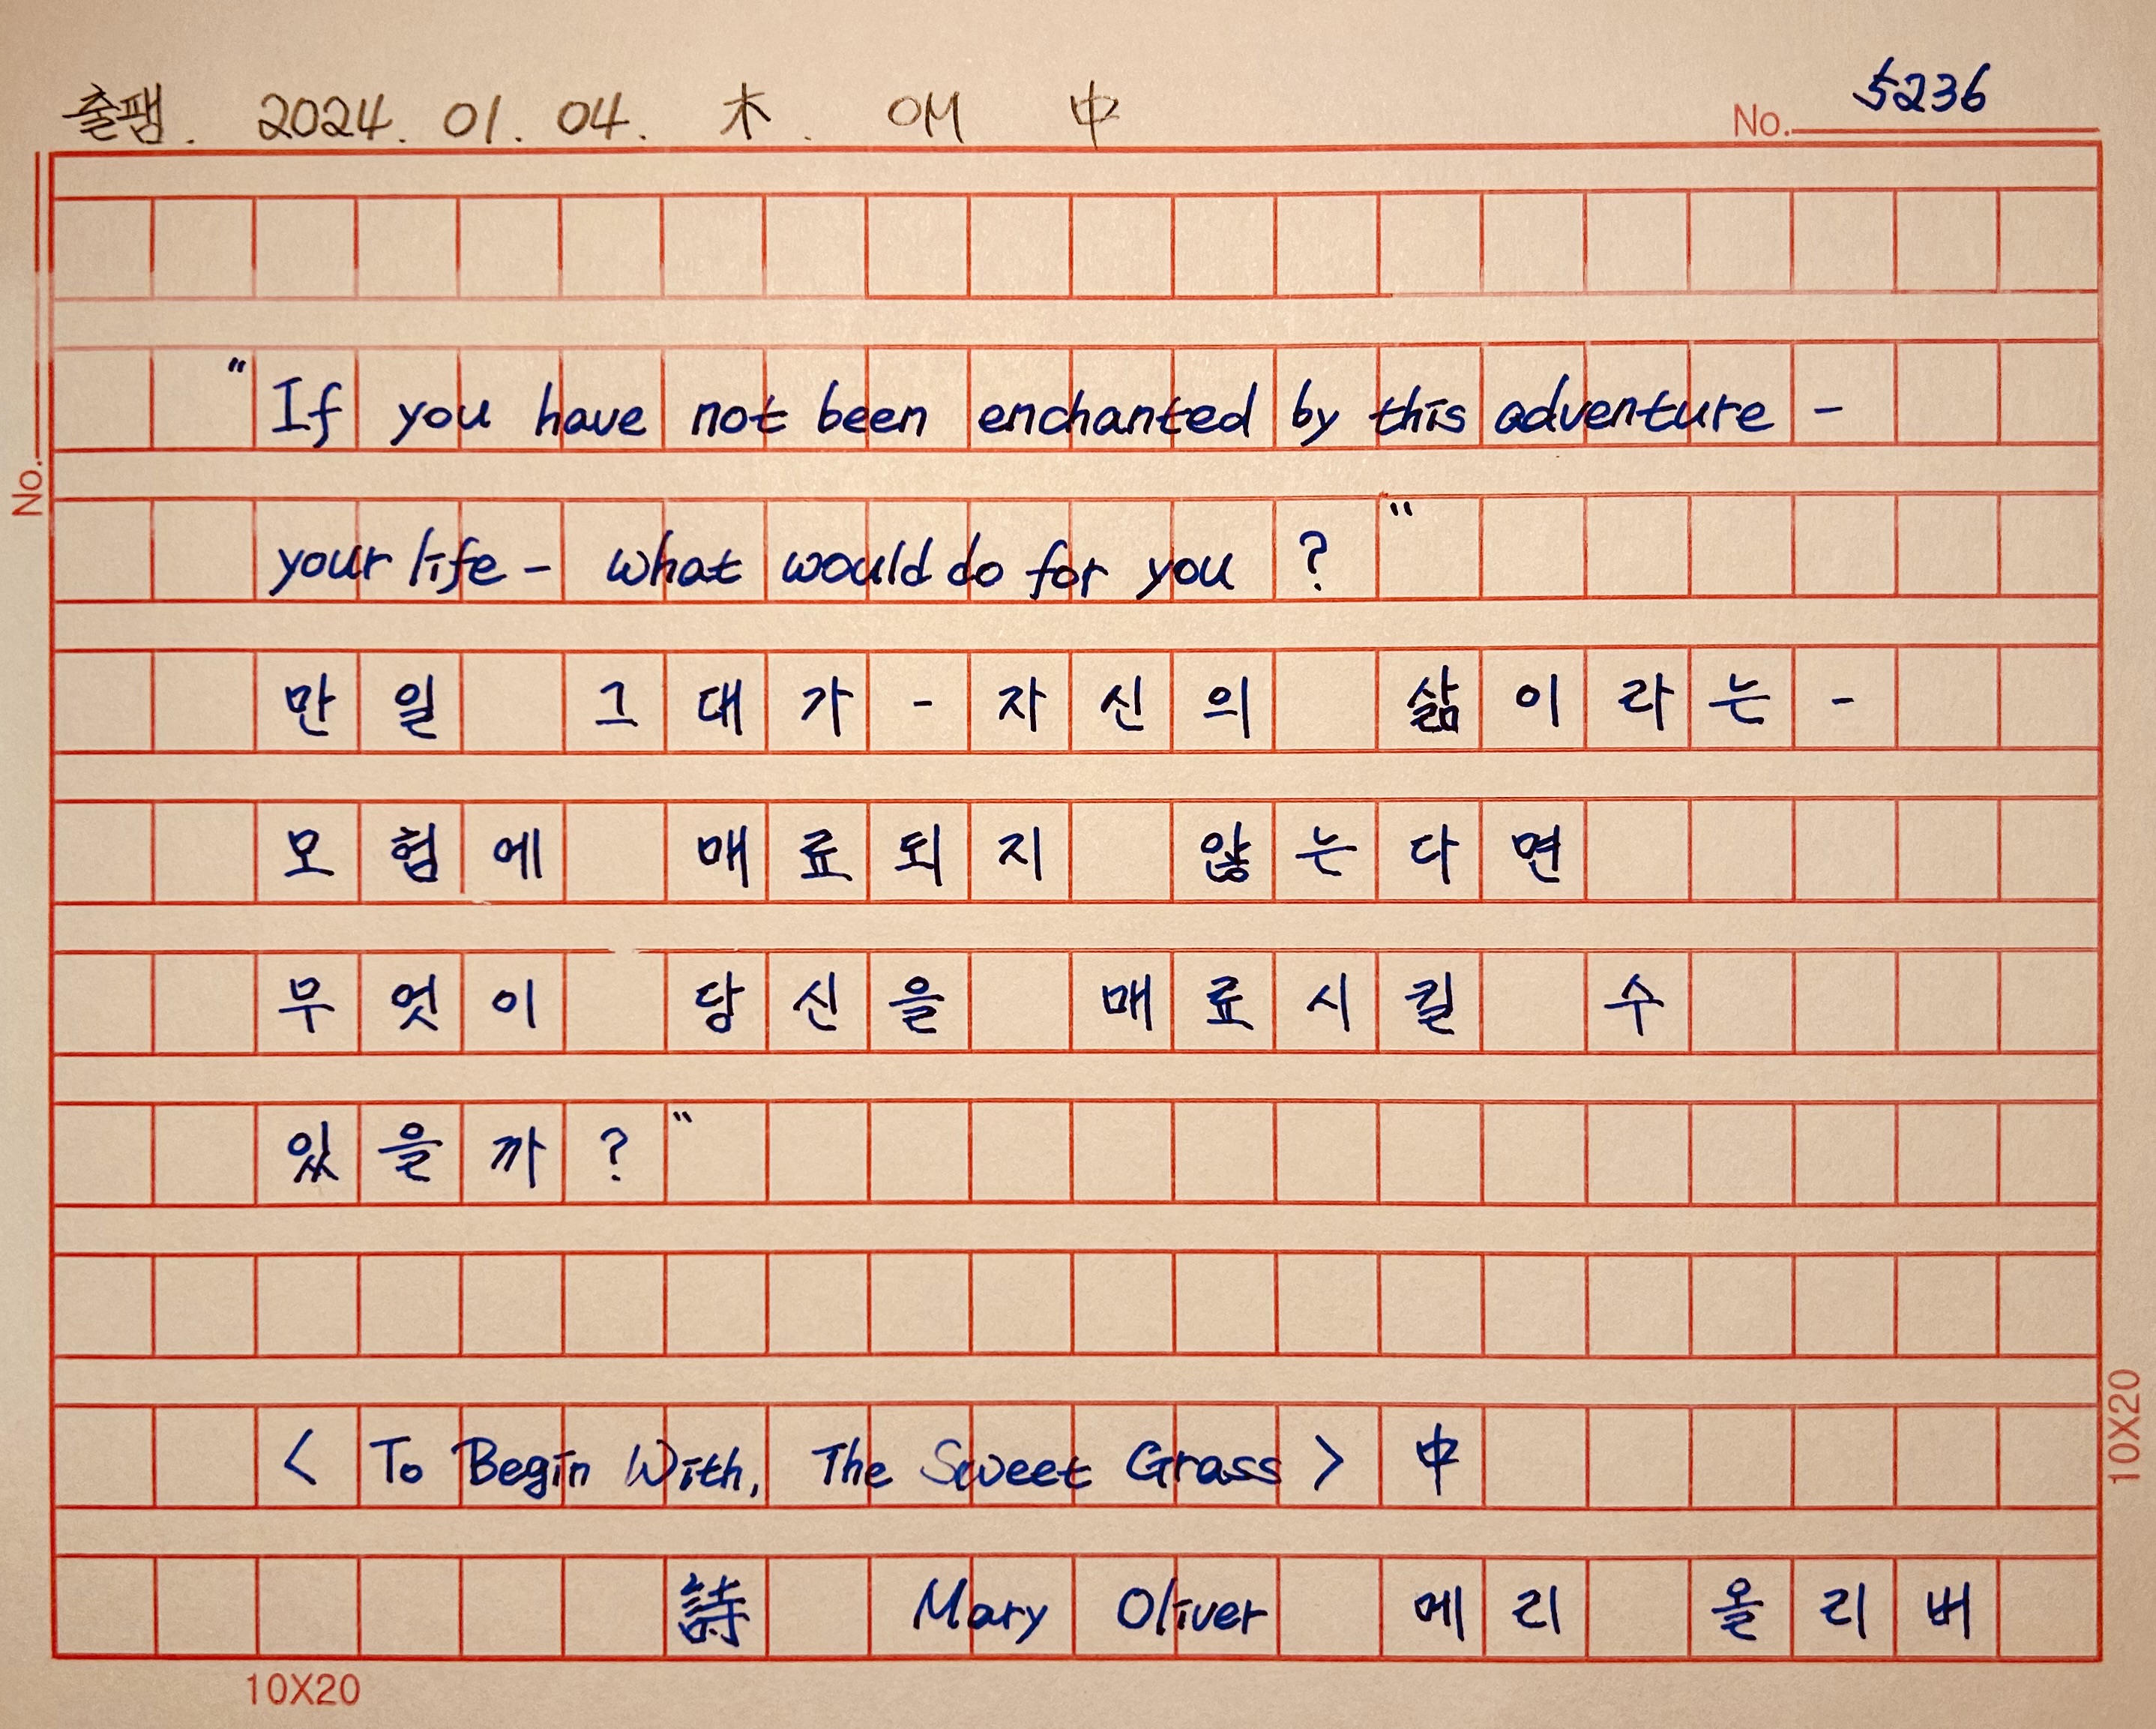 출팸. 2024. 01. 04. 木. OM 中
No. 5236
No.
"If you have not been enchanted by this adventure -
your life - what would do for you ? "
만일 그대가 - 자신의 삶이라는 -
모험에 매료되지 않는다면
무엇이 당신을 매료시킬 수
있을까? "
< To Begin With, The Sweet Grass > 中
詩 Mary Oliver 메리 올리버
10X20
10X20